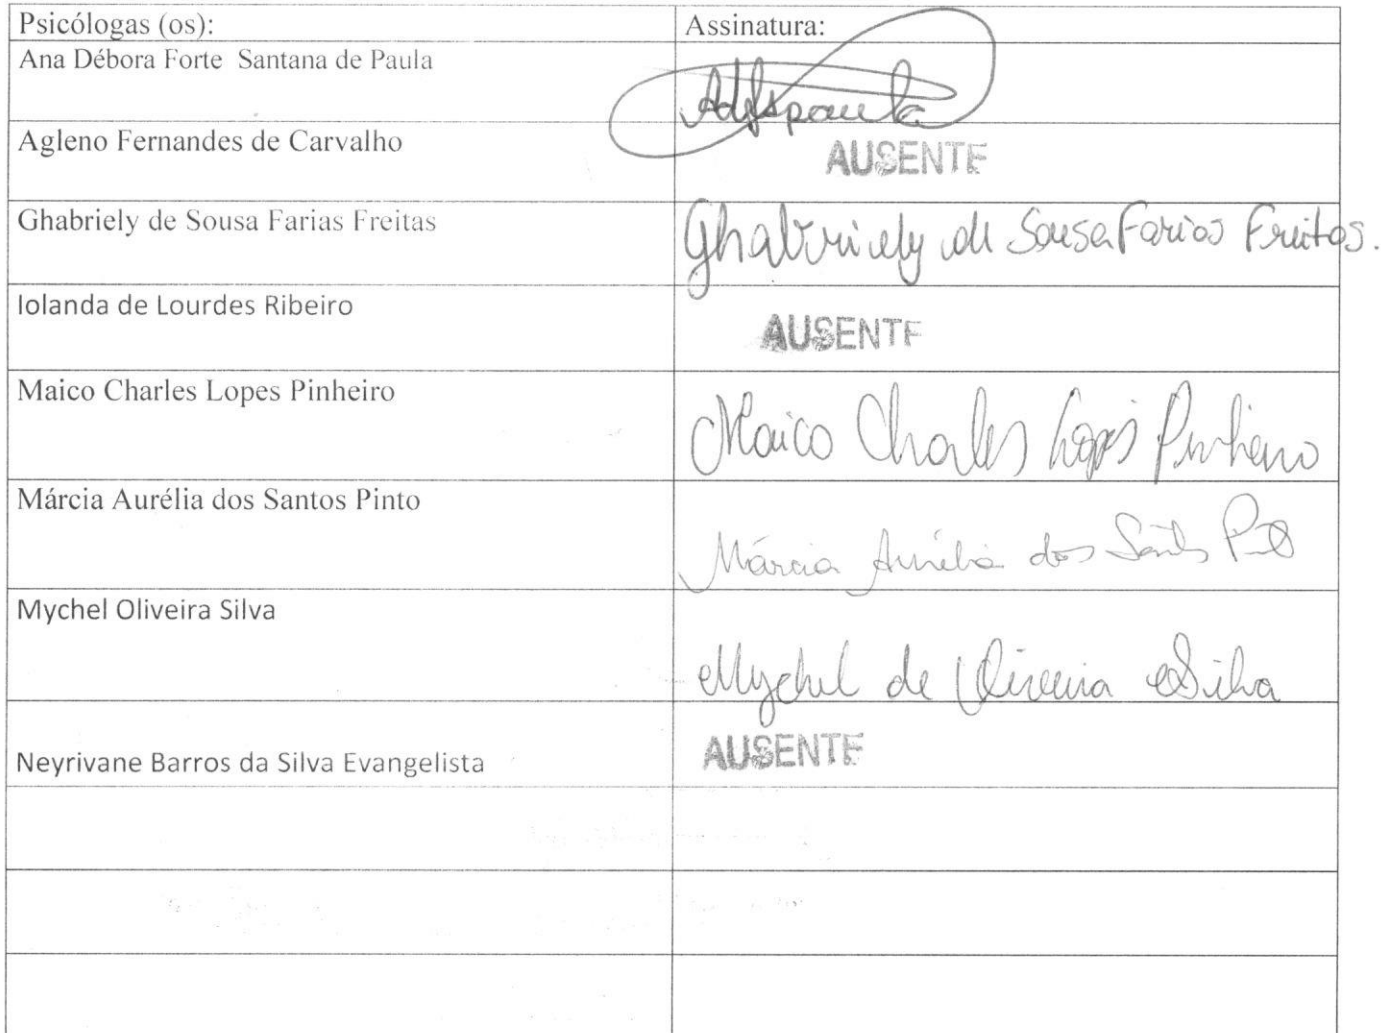 Psicólogas (os): Assinatura:
Ana Débora Forte Santana de Paula
Adfspaula
Agleno Fernandes de Carvalho AUSENTE
Ghabriely de Sousa Farias Freitas Ghabriely de Sousa Farias Freitas.
Iolanda de Lourdes Ribeiro AUSENTE
Maico Charles Lopes Pinheiro Maico Charles Lopes Pinheiro
Márcia Aurélia dos Santos Pinto
Márcia Aurélia dos Santos Pinto
Mychel Oliveira Silva
Mychel de Oliveira Silva
Neyrivane Barros da Silva Evangelista AUSENTE